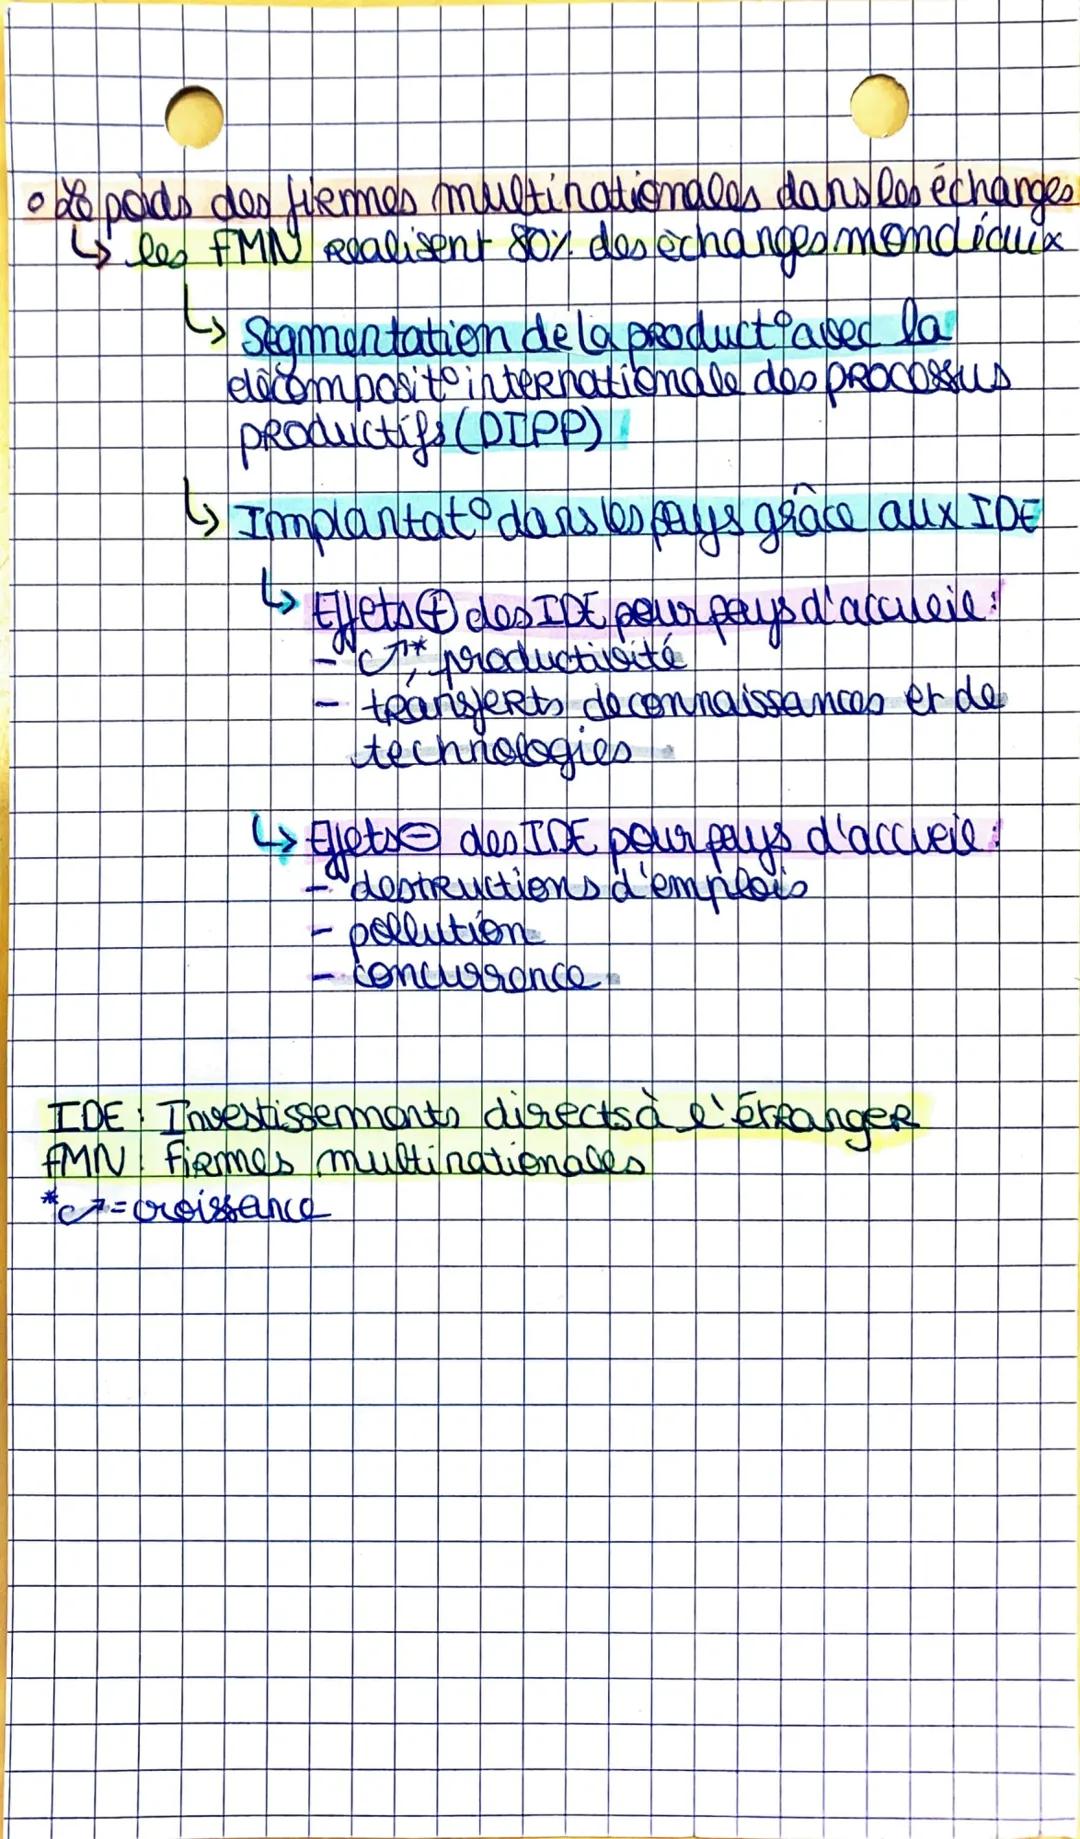 • Le poids des firmes multinationales dans les échanges
↳ les FMN réalisent 80% des échanges mondiaux
↳ Segmentation de la product° avec la
décomposit° internationale des processus
productifs (DIPP)
↳ Implantat° dans les pays grâce aux IDE
↳ Effets ⊕ des IDE pour pays d'accueil :
- c↗* productivité
- transferts de connaissances et de
technologies
↳ Effets ⊖ des IDE pour pays d'accueil :
- destructions d'emplois
- pollution
- concurrence
IDE : Investissements directs à l'étranger
FMN : Firmes multinationales
*c↗ = croissance